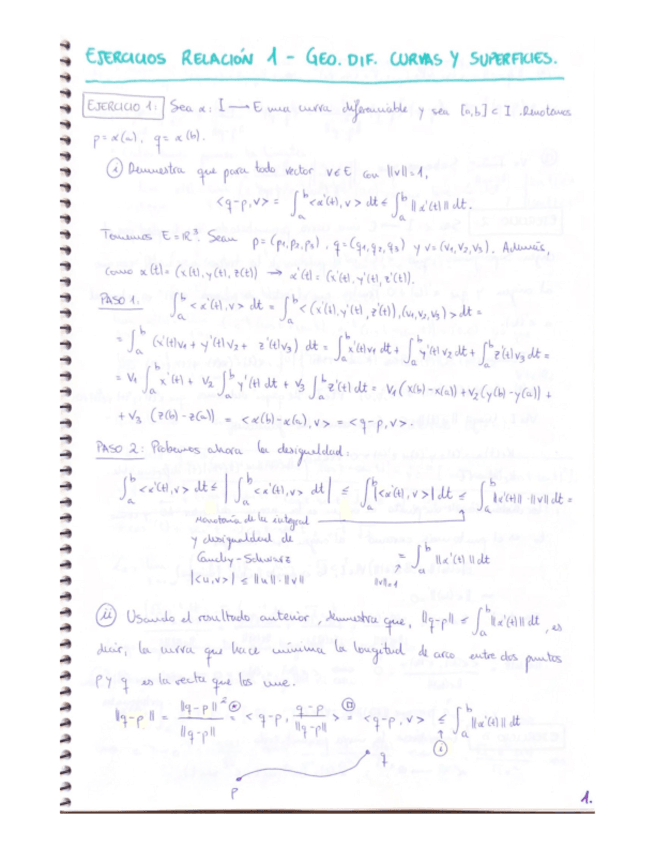 EJERCICIOS RELACIÓN 1 - GEO. DIF. CURVAS Y SUPERFICIES.
EJERCICIO 1: Sea α: I → E una curva diferenciable y sea [a,b] ⊂ I. Denotamos
p = α(a), q = α(b).
i) Demuestra que para todo vector v ∈ E con ||v|| = 1,
<q-p, v> = ∫_a^b <α'(t), v> dt ≤ ∫_a^b ||α'(t)|| dt.
Tomemos E = ℝ³. Sean p = (p₁, p₂, p₃), q = (q₁, q₂, q₃) y v = (v₁, v₂, v₃). Además,
como α(t) = (x(t), y(t), z(t)) → α'(t) = (x'(t), y'(t), z'(t)).
PASO 1. ∫_a^b <α'(t), v> dt = ∫_a^b <(x'(t), y'(t), z'(t)), (v₁, v₂, v₃)> dt =
= ∫_a^b (x'(t)v₁ + y'(t)v₂ + z'(t)v₃) dt = ∫_a^b x'(t)v₁ dt + ∫_a^b y'(t)v₂ dt + ∫_a^b z'(t)v₃ dt =
= v₁ ∫_a^b x'(t) + v₂ ∫_a^b y'(t) dt + v₃ ∫_a^b z'(t) dt = v₁(x(b)-x(a)) + v₂(y(b)-y(a)) +
+ v₃ (z(b)-z(a)) = <α(b)-α(a), v> = <q-p, v>.
PASO 2: Probemos ahora la desigualdad:
∫_a^b <α'(t), v> dt ≤ | ∫_a^b <α'(t), v> dt | ≤ ∫_a^b |<α'(t), v>| dt ≤ ∫_a^b ||α'(t)|| · ||v|| dt =
Monotonía de la integral
y desigualdad de
Cauchy-Schwarz
|<u,v>| ≤ ||u|| · ||v||
= ∫_a^b ||α'(t)|| dt
||v||=1
ii) Usando el resultado anterior, demuestra que, ||q-p|| ≤ ∫_a^b ||α'(t)|| dt, es
decir, la curva que hace mínima la longitud de arco entre dos puntos
p y q es la recta que los une.
||q-p|| = ||q-p||² / ||q-p|| = <q-p, (q-p)/||q-p||> = <q-p, v> ≤ ∫_a^b ||α'(t)|| dt
i
q
p
1.